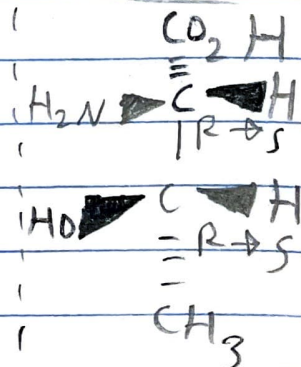 CO2H
H2N C H
R → S
HO C H
R → S
CH3